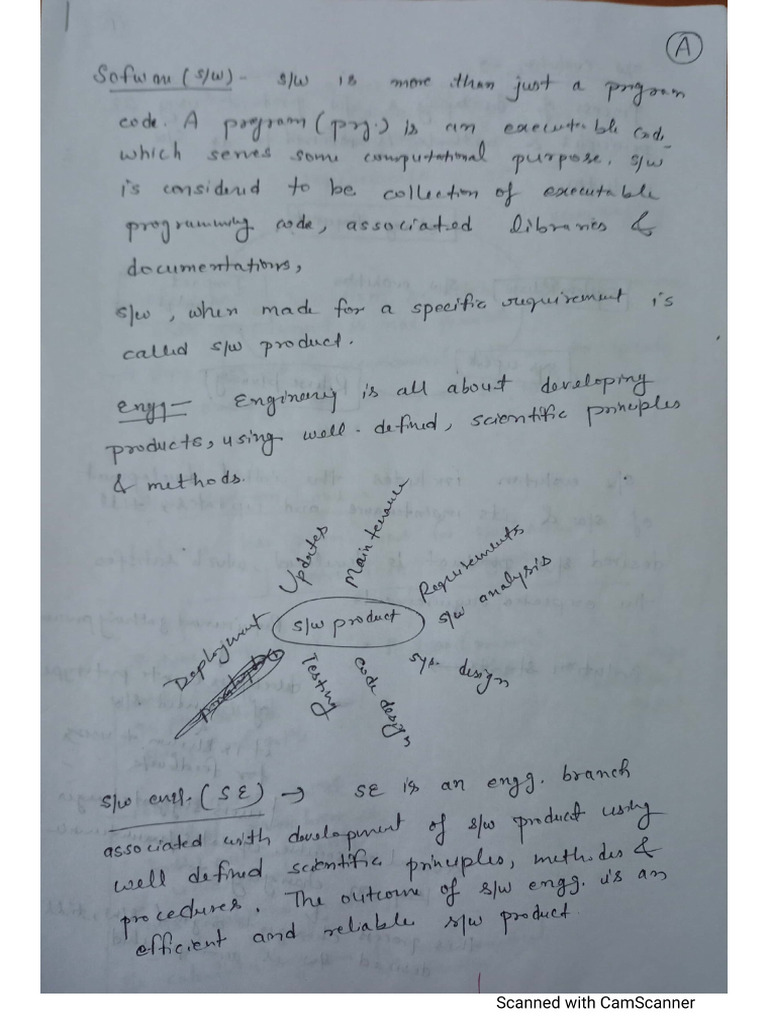 A
Sofware (s/w) - s/w is more than just a program
code. A program (prg.) is an executable code,
which serves some computational purpose. s/w
is considered to be collection of executable
programming code, associated libraries &
documentations,
s/w, when made for a specific requirement is
called s/w product.
Engg - Enginering is all about developing
products, using well-defined, scientific principles
& methods.
Updates
Maintenance
Requirements
s/w analysis
Deployment
s/w product
sys. design
Testing
Code design
s/w engg. (SE) → SE is an engg. branch
associated with development of s/w product using
well defined scientific principles, methods &
procedures. The outcome of s/w engg. is an
efficient and reliable s/w product
Scanned with CamScanner